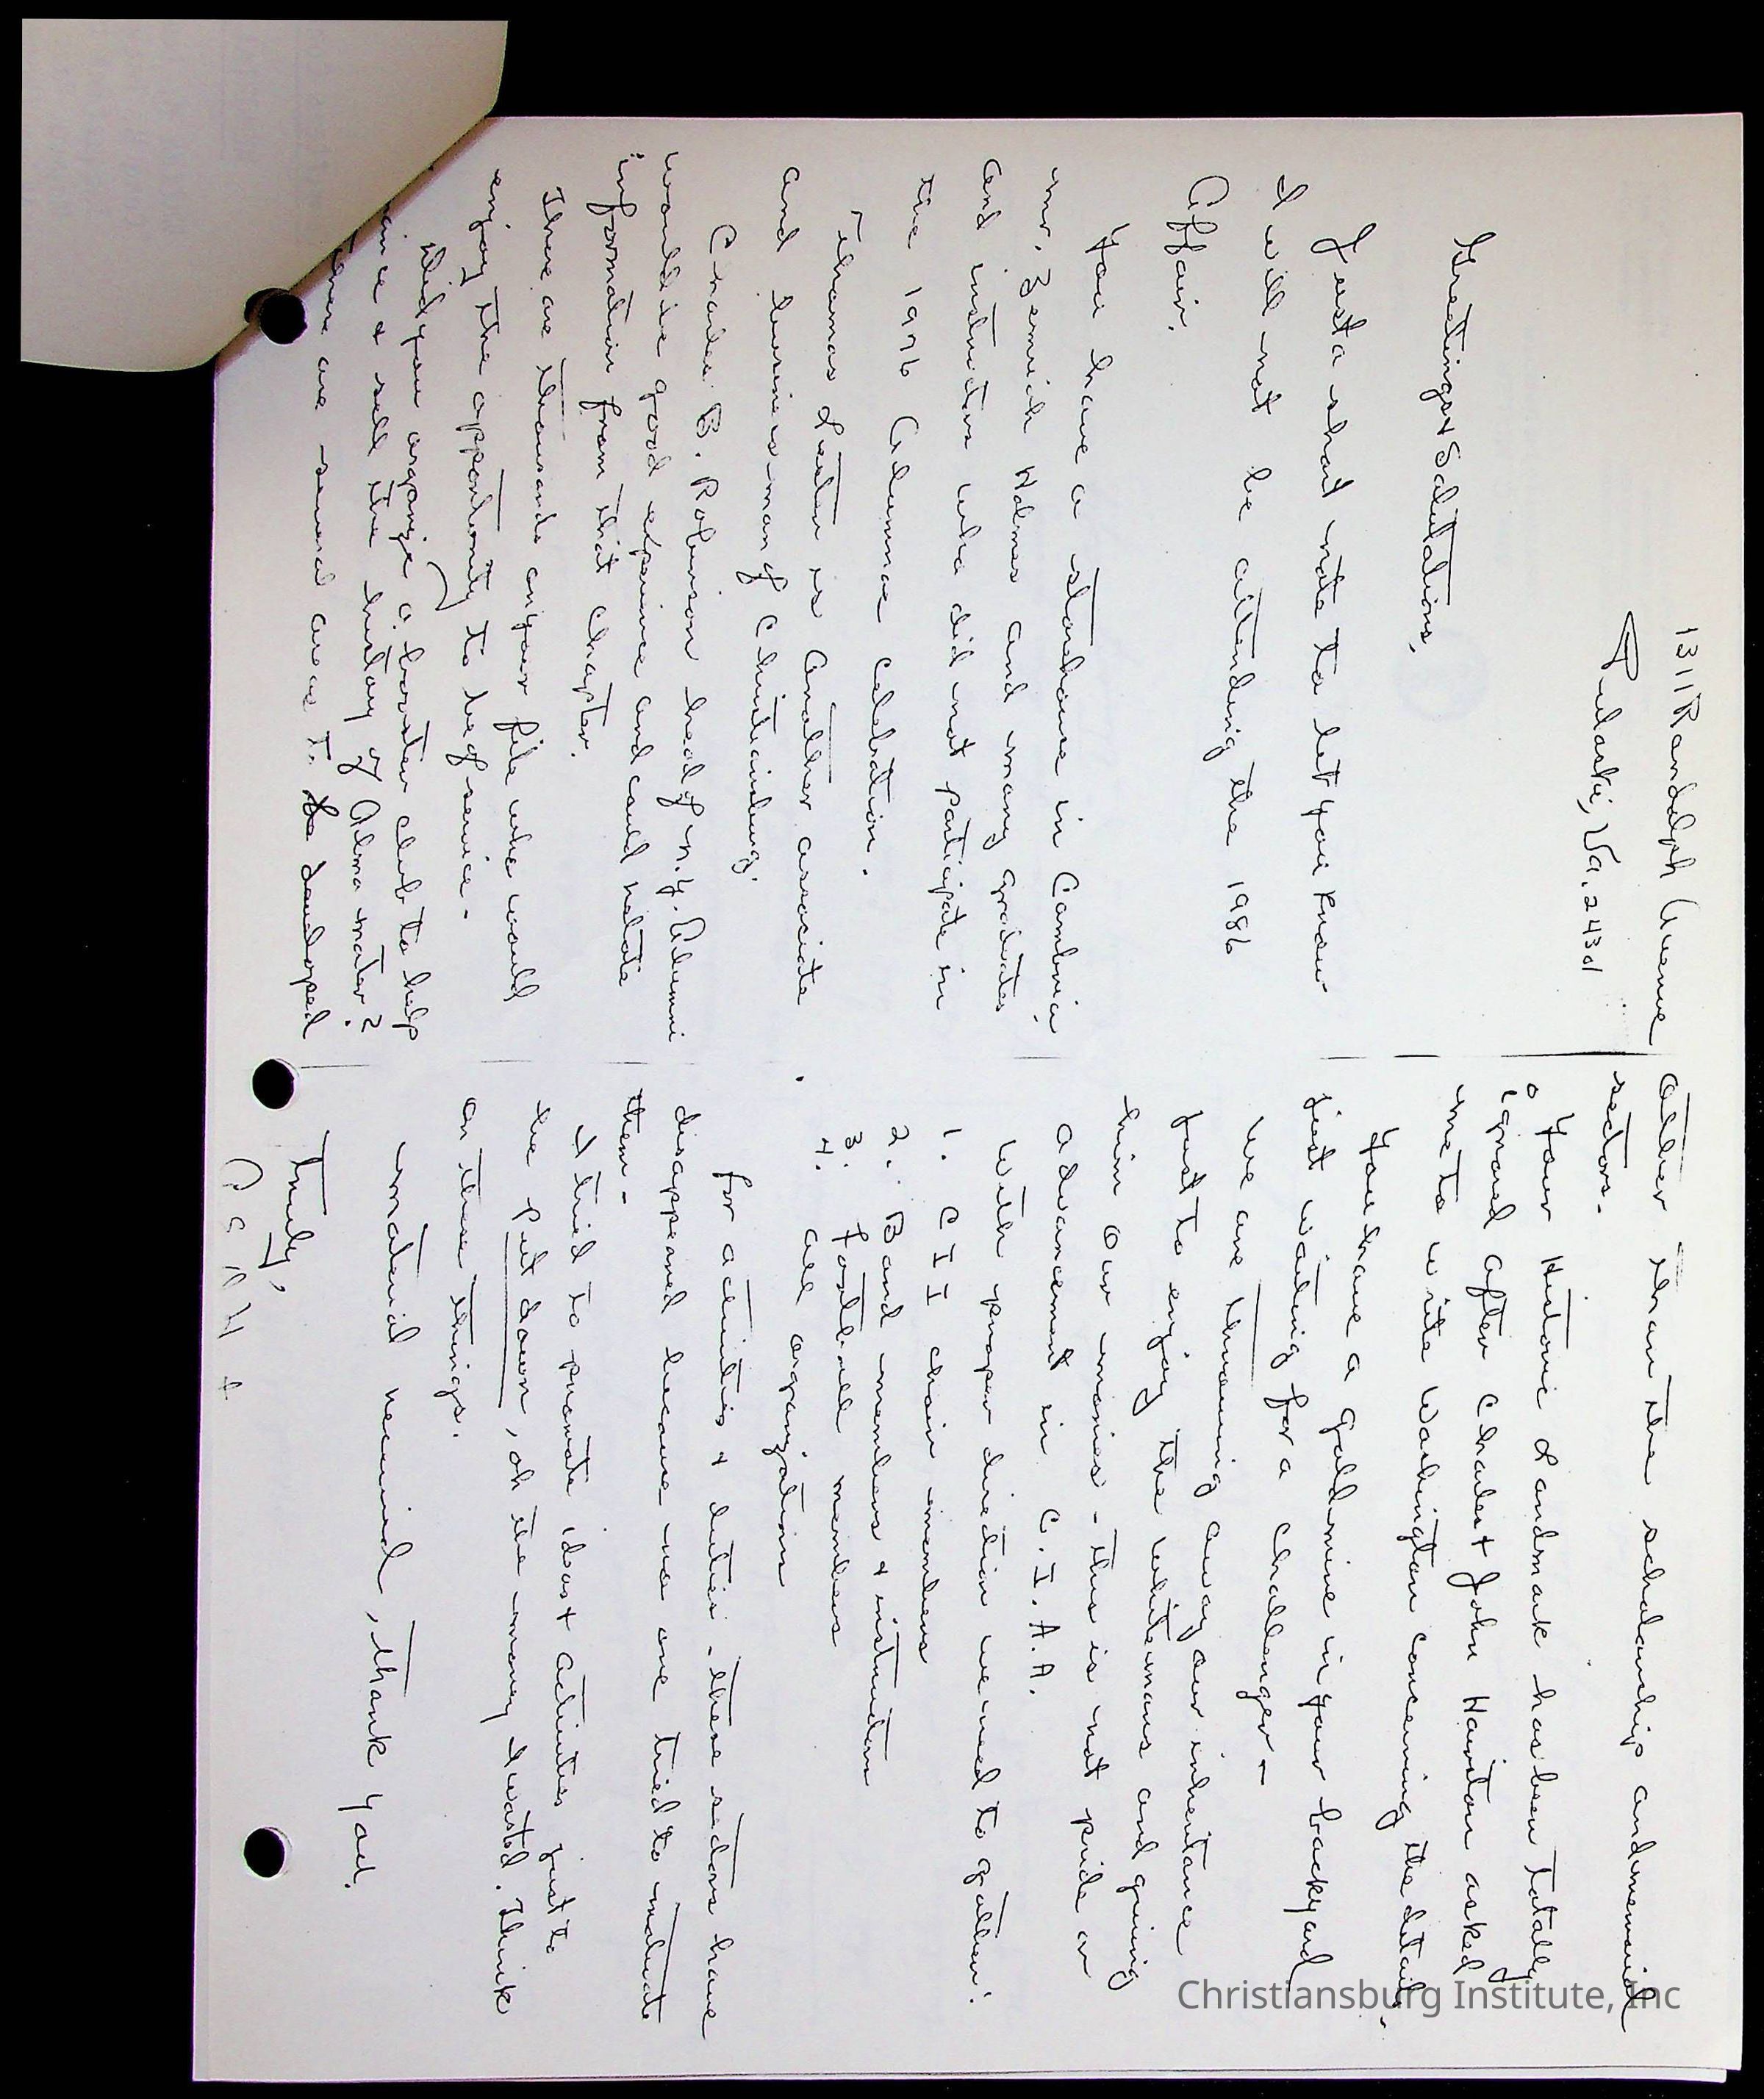 1311 Randolph Avenue
Pulaski, Va. 24301
Greetings & Salutations,
Just a short note to let you know
I will not be attending the 1986
Affair.
You have a storehouse in Cambria,
Mr. Zemich Holmes and many graduates
and instructors who did not participate in
the 1976 Alumnae Celebration.
Thomas Lester is another associate
and businessman of Christiansburg.
Charles B. Robinson head of N.Y. Alumni
would be good experience and could
information from that chapter.
There are thousands on your file who would
enjoy the opportunity to be of service.
Did you organize a booster club to help
& sell the history of Alma mater?
There are several areas to be developed
other than the scholarship and
sectors.
Your Historic Landmark has been totally
ignored after Charles & John Hairston asked
me to write Washington concerning the details.
You have a goldmine in your backyard
just waiting for a challenger -
We are throwing away our inheritance
just to enjoy the whitemans and giving
him our monies - this is not pride or
advancement in C.I.A.A.
With proper direction we need to gather:
1. CII choir members
2. Band members & instructors
3. Football members
4. All organizations
for activities & duties - these sectors have
disappeared because no one tried to
them -
I tried to promote ideas & activities just to
be put down, oh the money I wasted. Think
on these things.
material received, thank you.
Truly,
Christiansburg Institute, Inc